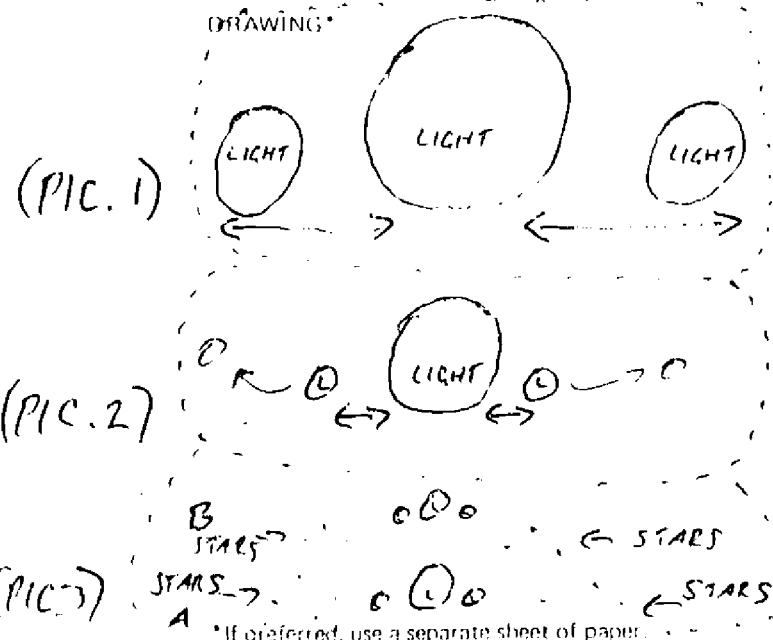 DRAWING*
LIGHT LIGHT LIGHT
(PIC. 1)
(PIC. 2)
L LIGHT L
B L
STARS STARS
(PIC 3) STARS L STARS
A
*If preferred, use a separate sheet of paper.